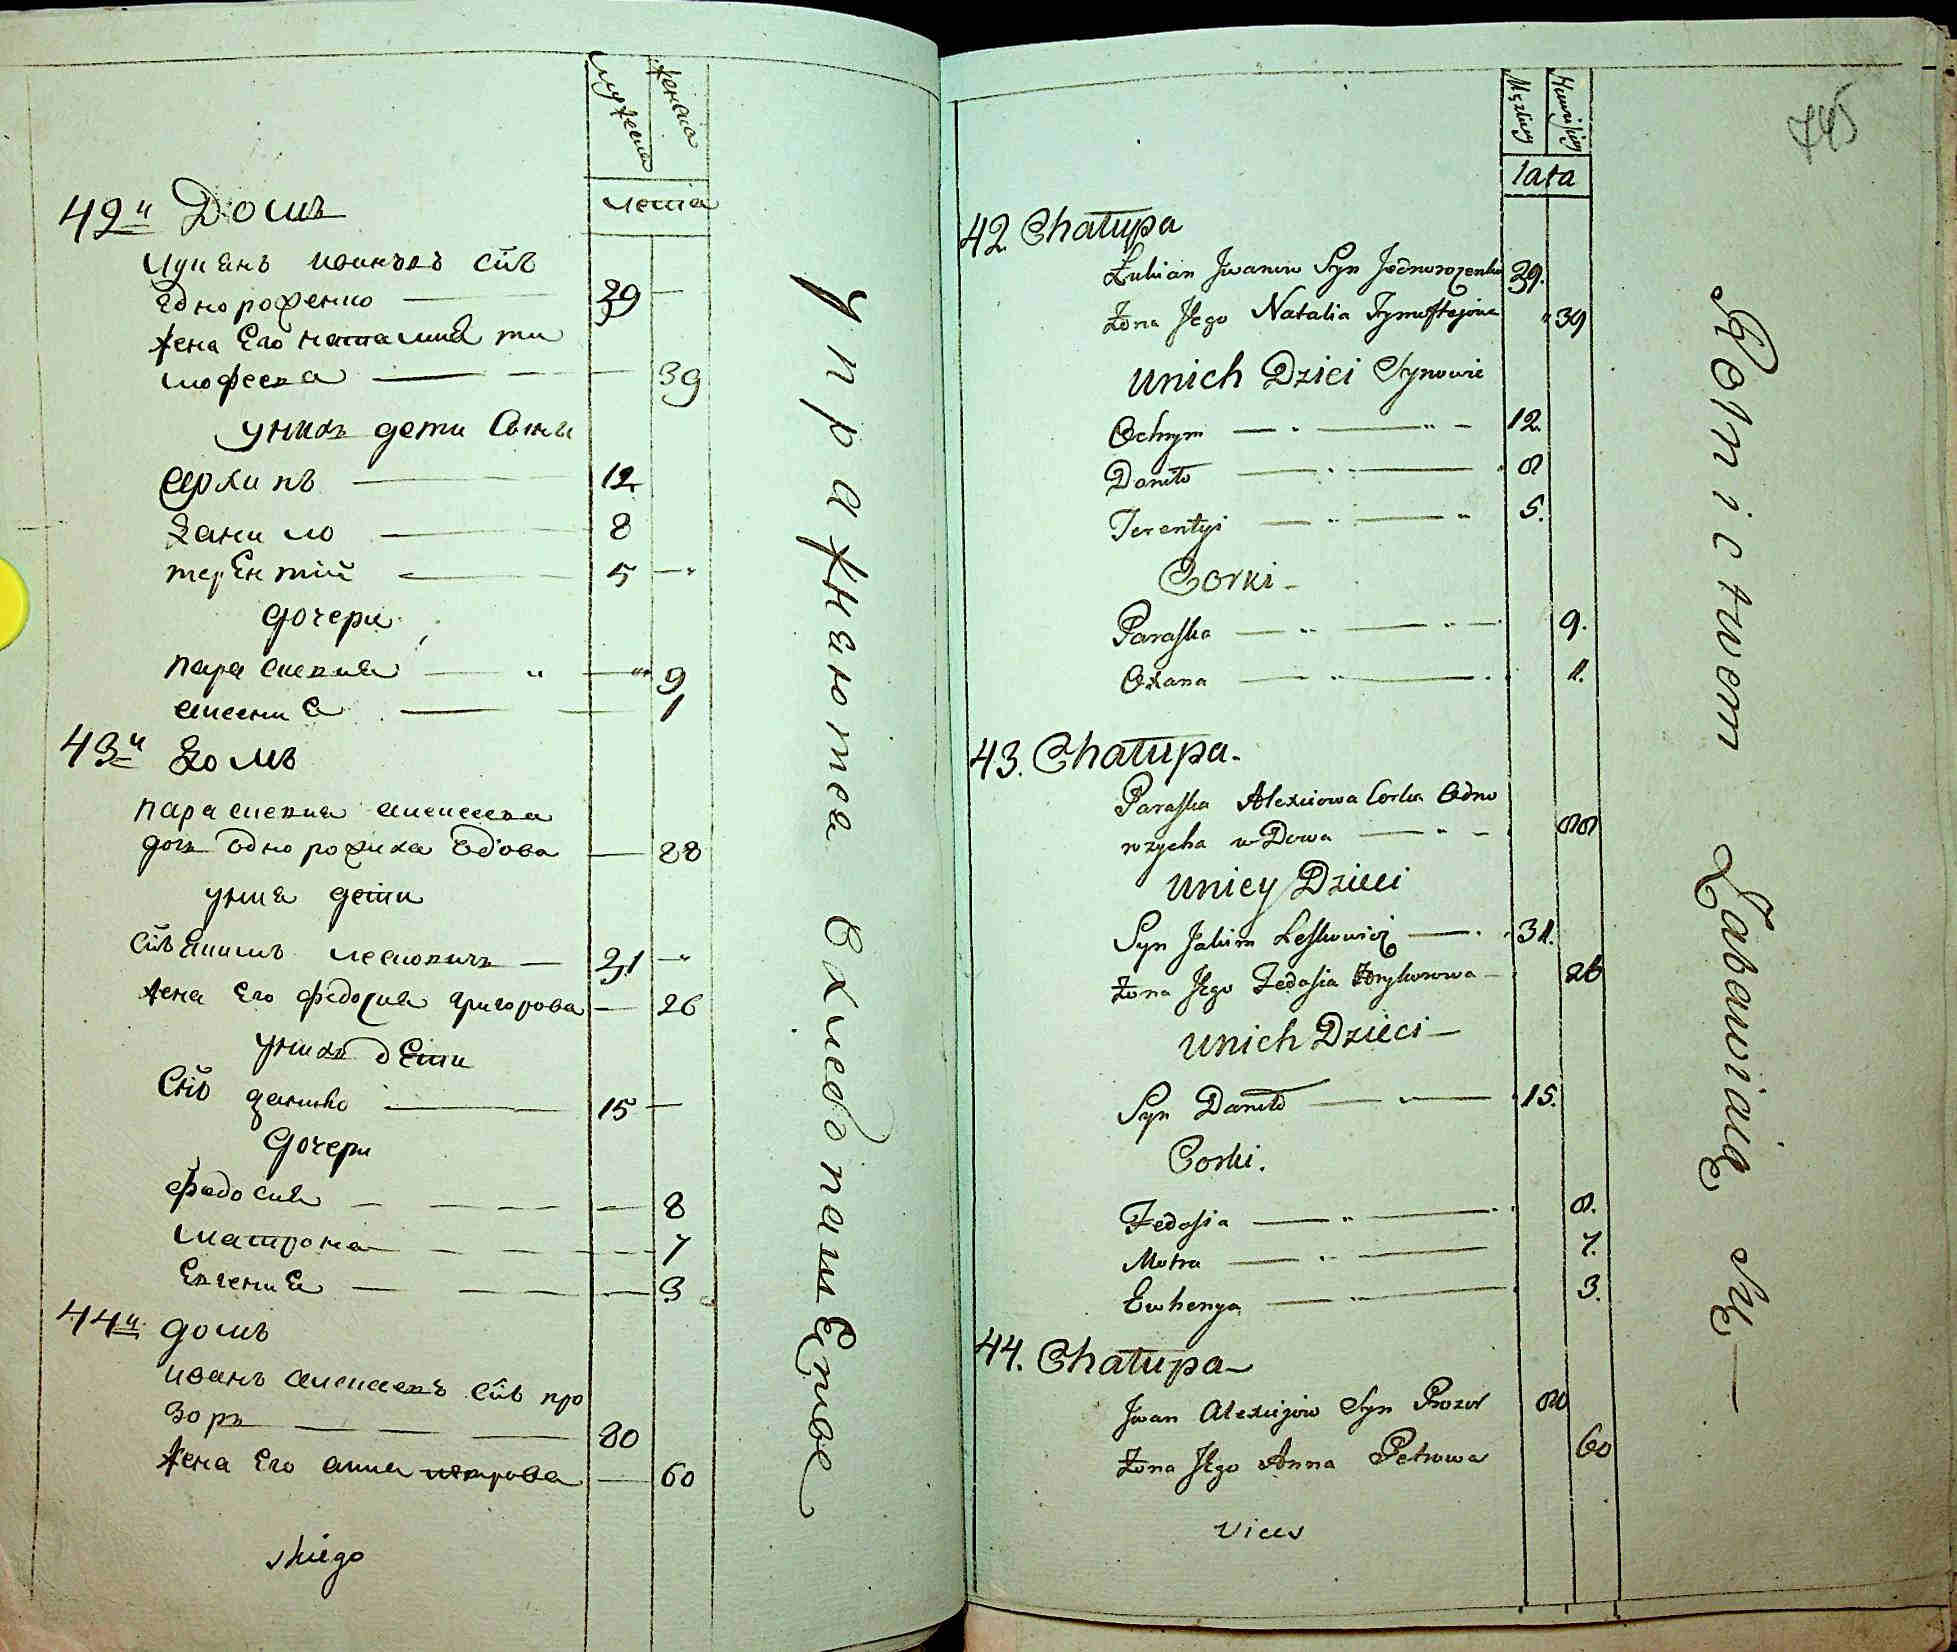 мужеска женска
лета
42й Домъ
Лукянъ ивановъ снъ
Еднороженко — 39 —
жена Его наталия ти
мофеева — 39
уних дети Сыны
Архипъ — 12
Данило — 8
терентий — 5 —
дочери
параскевия — 9
аксения — 1
43й Домъ
параскевия алексеева
дочь Однорожиха вдова — 88
унея дети
снъ Якимъ лескович — 31 —
жена Его федосия григорова — 26
уних дети
Снъ данило — 15 —
дочери
федосия — 8
матрона — 7
Евгения — 3
44й домъ
иванъ алексеевъ снъ про
зоръ — 80
жена Его анна петрова — 60
skiego
упражняются в хлебопашестве
745
Męzkiey
lata
42 Chałupa
Łukian Jwanow Syn Jednorozenko 39.
Żona Jego Natalia Tymofiejowa 39
unich Dzieci Synowie
12.
Daniło — 8
Terentyi — 5.
Corki —
Paraska — 9.
Oxana — 1.
43. Chałupa.
Paraska Alexiiowa Corka Odno
rozycha wDowa — 88
uniey Dzieci
Syn Jakim Leskowicz — 31.
Żona Jego Fedosia Hryhorowa — 26
unich Dzieci —
Syn Daniło — 15.
Corki.
Fedosia — 8.
Motra — 7.
Ewhenya — 3.
44. Chałupa —
Jwan Alexiijow Syn Prozor 80
Żona Jego Anna Petrowa 60
vices
Rolnictwem Zabawiaią się —